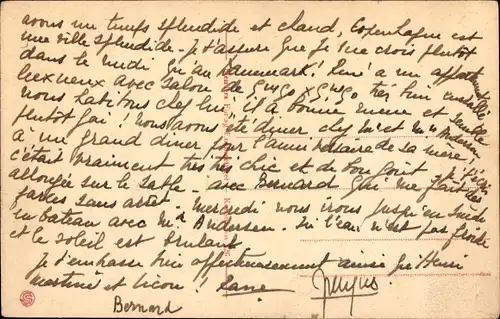 avons un temps splendide et chaud, Copenhague est
une ville splendide - je t'assure que je me crois plutôt
dans le midi qu'au Danemark! René a un appartement
luxueux avec salon de 9m50 x 9m50 très bien installé
nous habitons chez lui, il a bonne mine et semble
plutôt gai! Nous avons été dîner chez Mr et Mme Andersen
à un grand dîner pour l'anniversaire de sa mère,
c'était vraiment très très chic et de bon goût
allongée sur le sable - avec Bernard qui me fait des
farces sans arrêt - Mercredi nous irons jusqu'en Suède
en bateau avec Mr Andersen - Ici l'eau n'est pas froide
et le soleil est brulant
Je t'embrasse bien affectueusement ainsi que Henri
Martine et
Bernard